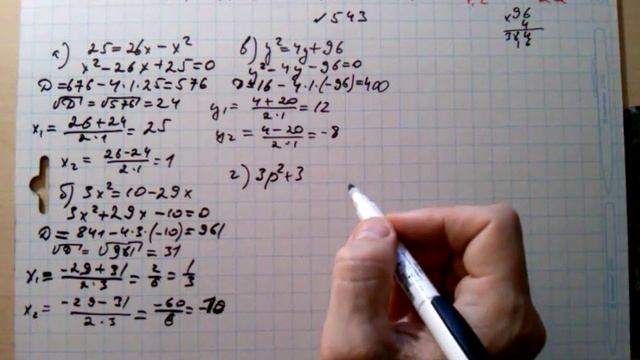 ✓543
×96
4
384
а) 25=26x-x²
x²-26x+25=0
D=676-4·1·25=576
√D=√576=24
x₁=(26+24)/(2·1)=25
x₂=(26-24)/(2·1)=1
б) 3x²=10-29x
3x²+29x-10=0
D=841-4·3·(-10)=961
√D=√961=31
x₁=(-29+31)/(2·3)=2/6=1/3
x₂=(-29-31)/(2·3)=-60/6=-10
в) y²=4y+96
y²-4y-96=0
D=16-4·1·(-96)=400
y₁=(4+20)/(2·1)=12
y₂=(4-20)/(2·1)=-8
г) 3p²+3